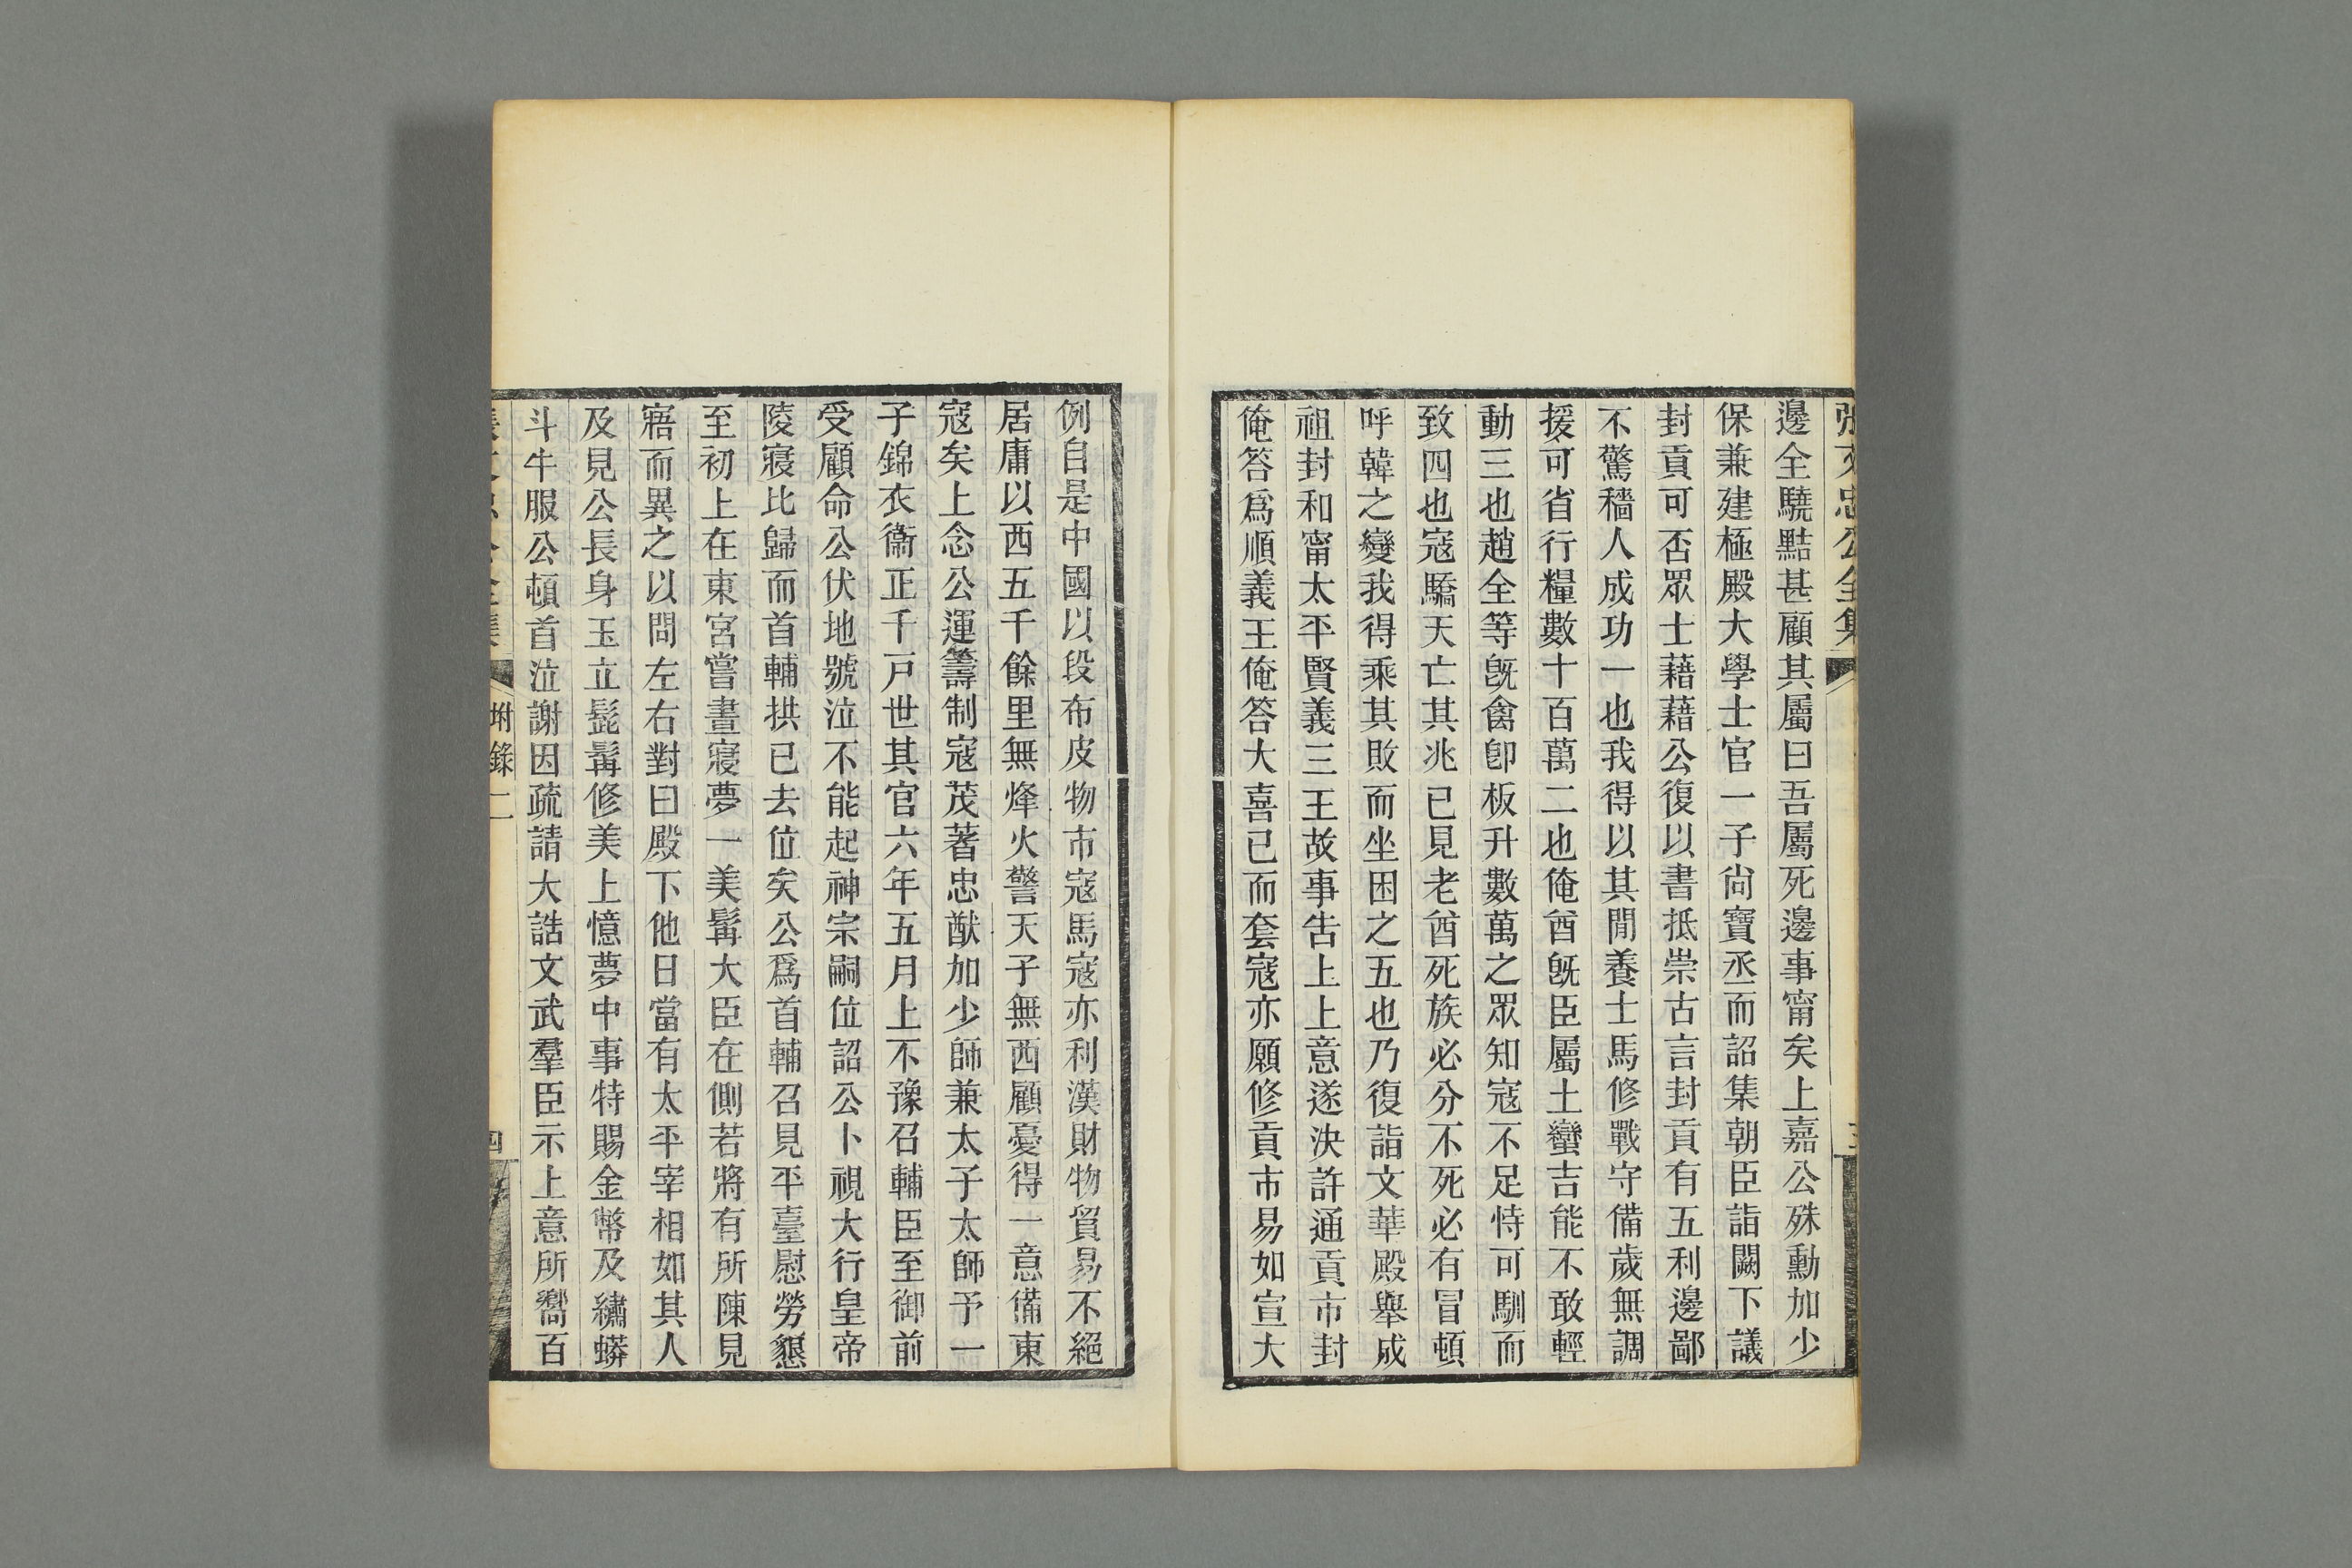 張文忠公全集
邊全驍黠甚顧其屬曰吾屬死邊事甯矣上嘉公殊勳加少
保兼建極殿大學士官一子尙寶丞而詔集朝臣詣闕下議
封貢可否眾士藉藉公復以書抵崇古言封貢有五利邊鄙
不驚穡人成功一也我得以其閒養士馬修戰守備歲無調
援可省行糧數十百萬二也俺酋旣臣屬土蠻吉能不敢輕
動三也趙全等旣禽卽板升數萬之眾知寇不足恃可馴而
致四也寇驕天亡其兆已見老酋死族必分不死必有冒頓
呼韓之變我得乘其敗而坐困之五也乃復詣文華殿舉成
祖封和甯太平賢義三王故事告上上意遂決許通貢市封
俺答爲順義王俺答大喜已而套寇亦願修貢市易如宣大
例自是中國以段布皮物市寇馬寇亦利漢財物貿易不絕
居庸以西五千餘里無烽火警天子無西顧憂得一意備東
寇矣上念公運籌制寇茂著忠猷加少師兼太子太師予一
子錦衣衞正千戶世其官六年五月上不豫召輔臣至御前
受顧命公伏地號泣不能起神宗嗣位詔公卜視大行皇帝
陵寢比歸而首輔拱已去位矣公爲首輔召見平臺慰勞懇
至初上在東宮嘗晝寢夢一美髯大臣在側若將有所陳見
寤而異之以問左右對曰殿下他日當有太平宰相如其人
及見公長身玉立髭髯修美上憶夢中事特賜金幣及繡蟒
斗牛服公頓首泣謝因疏請大誥文武羣臣示上意所嚮百
坿錄二
四